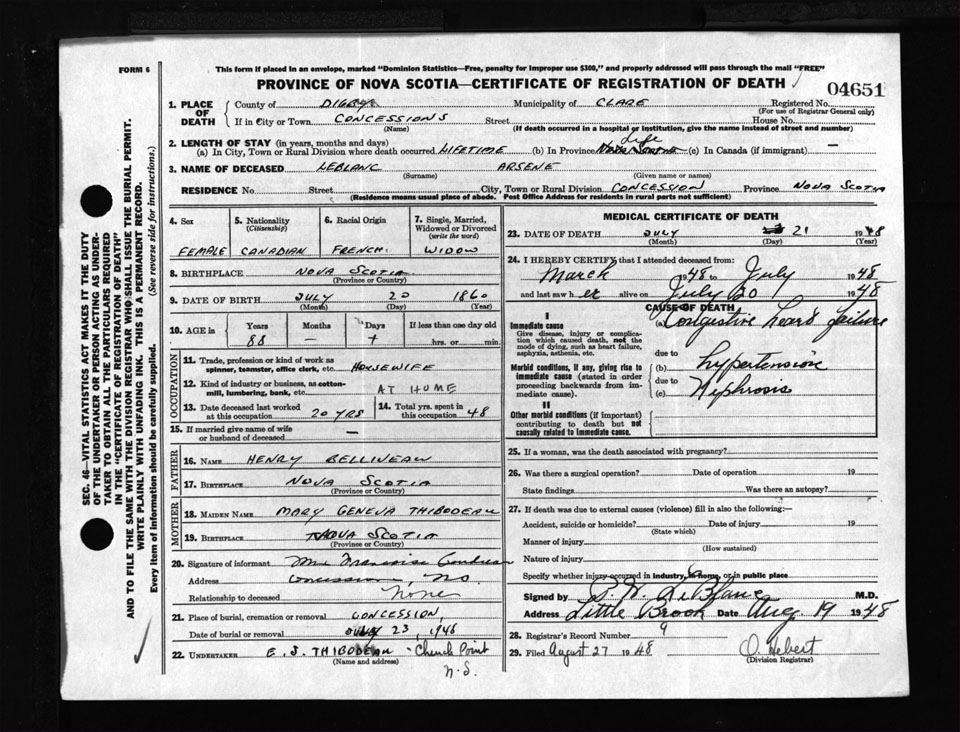 FORM 6
This form if placed in an envelope, marked "Dominion Statistics—Free, penalty for improper use $300," and properly addressed will pass through the mail "FREE"
PROVINCE OF NOVA SCOTIA—CERTIFICATE OF REGISTRATION OF DEATH
04651
1. PLACE OF DEATH
County of DIGBY Municipality of CLARE Registered No.
(For use of Registrar General only)
If in City or Town CONCESSIONS Street House No.
(Name) (If death occurred in a hospital or institution, give the name instead of street and number)
2. LENGTH OF STAY (in years, months and days)
(a) In City, Town or Rural Division where death occurred LIFETIME (b) In Province Nova Scotia Life (c) In Canada (if immigrant) —
3. NAME OF DECEASED LEBLANC ARSENE
(Surname) (Given name or names)
RESIDENCE No. Street City, Town or Rural Division CONCESSION Province NOVA SCOTIA
(Residence means usual place of abode. Post Office Address for residents in rural parts not sufficient)
4. Sex
FEMALE
5. Nationality
(Citizenship)
CANADIAN
6. Racial Origin
FRENCH
7. Single, Married, Widowed or Divorced
(write the word)
WIDOW
8. BIRTHPLACE NOVA SCOTIA
(Province or Country)
9. DATE OF BIRTH JULY 20 1860
(Month) (Day) (Year)
10. AGE in Years Months Days If less than one day old
88 — + hrs. or min.
OCCUPATION
11. Trade, profession or kind of work as
spinner, teamster, office clerk, etc. HOUSEWIFE
12. Kind of industry or business, as cotton-
mill, lumbering, bank, etc. AT HOME
13. Date deceased last worked
at this occupation 20 YRS
14. Total yrs. spent in
this occupation 48
15. If married give name of wife
or husband of deceased —
FATHER
16. NAME HENRY BELLIVEAU
17. BIRTHPLACE NOVA SCOTIA
(Province or Country)
MOTHER
18. MAIDEN NAME MARY GENEVA THIBODEAU
19. BIRTHPLACE NOVA SCOTIA
(Province or Country)
20. Signature of informant Mrs
Address Concession, N.S.
Relationship to deceased none
21. Place of burial, cremation or removal CONCESSION
Date of burial or removal July 23, 1948
22. UNDERTAKER E. J. THIBODEAU - Church Point
(Name and address)
N.S.
MEDICAL CERTIFICATE OF DEATH
23. DATE OF DEATH JULY 21 1948
(Month) (Day) (Year)
24. I HEREBY CERTIFY that I attended deceased from:
March 1948 to July 1948
and last saw her alive on July 20 1948
CAUSE OF DEATH
I
Immediate cause
Give disease, injury or complica-
tion which caused death, not the
mode of dying, such as heart failure,
asphyxia, asthenia, etc.
(a) Congestive heart failure
due to
Morbid conditions, if any, giving rise to
immediate cause (stated in order
proceeding backwards from im-
mediate cause).
(b) hypertension
due to
(c) Nephrosis
II
Other morbid conditions (if important)
contributing to death but not
causally related to immediate cause.
25. If a woman, was the death associated with pregnancy?
26. Was there a surgical operation? Date of operation 19
State findings Was there an autopsy?
27. If death was due to external causes (violence) fill in also the following:—
Accident, suicide or homicide? Date of injury 19
(State which)
Manner of injury
(How sustained)
Nature of injury
Specify whether injury occurred in industry, in home, or in public place
Signed by P. H. LeBlanc M.D.
Address Little Brook Date Aug. 19 1948
28. Registrar's Record Number 9
29. Filed August 27 1948 O. Hebert
(Division Registrar)
SEC. 46—VITAL STATISTICS ACT MAKES IT THE DUTY
OF THE UNDERTAKER OR PERSON ACTING AS UNDER-
TAKER TO OBTAIN ALL THE PARTICULARS REQUIRED
IN THE "CERTIFICATE OF REGISTRATION OF DEATH"
AND TO FILE THE SAME WITH THE DIVISION REGISTRAR WHO SHALL ISSUE THE BURIAL PERMIT.
WRITE PLAINLY WITH UNFADING INK. THIS IS A PERMANENT RECORD.
Every item of information should be carefully supplied. (See reverse side for instructions.)